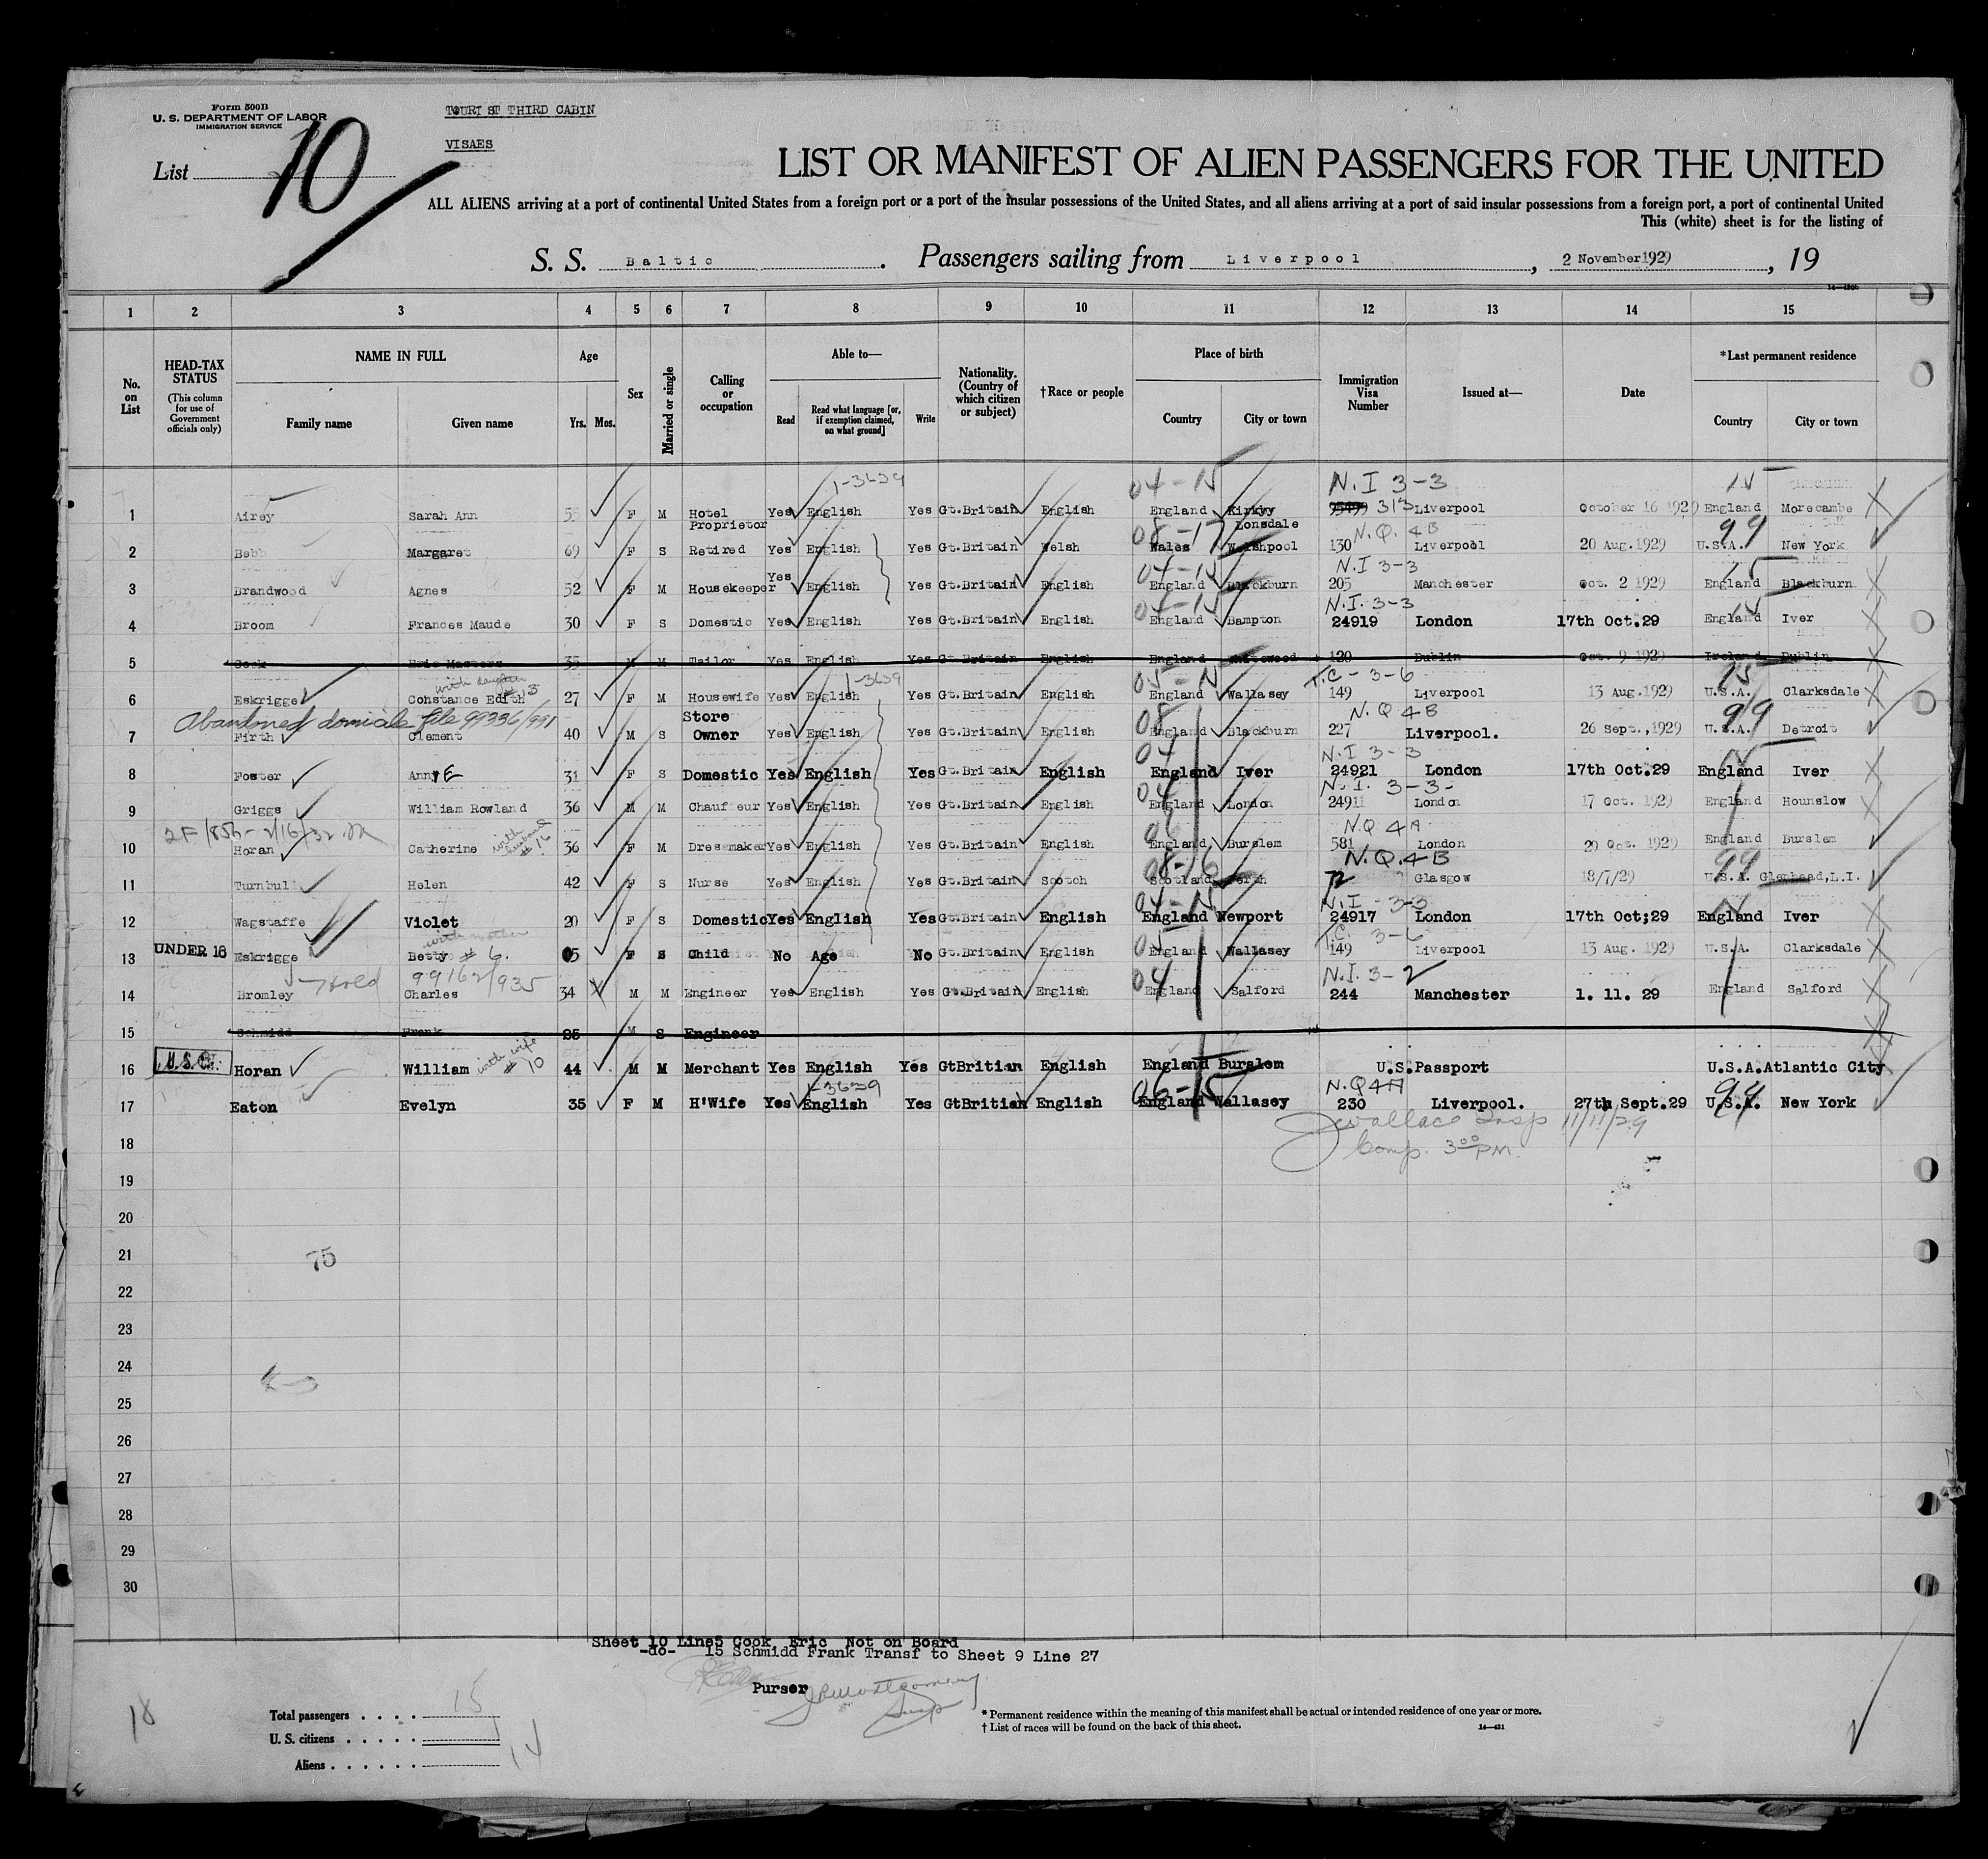 Form 500B
U. S. DEPARTMENT OF LABOR
IMMIGRATION SERVICE
TOURIST THIRD CABIN
VISAES
List 10
LIST OR MANIFEST OF ALIEN PASSENGERS FOR THE UNITED
ALL ALIENS arriving at a port of continental United States from a foreign port or a port of the insular possessions of the United States, and all aliens arriving at a port of said insular possessions from a foreign port, a port of continental United
This (white) sheet is for the listing of
S. S. Baltic. Passengers sailing from Liverpool, 2 November 1929, 19
1 2 3 4 5 6 7 8 9 10 11 12 13 14 15
No. on List
HEAD-TAX STATUS
(This column for use of Government officials only)
NAME IN FULL
Family name Given name
Age
Yrs. Mos.
Sex
Married or single
Calling or occupation
Able to—
Read
Read what language [or, if exemption claimed, on what ground]
Write
Nationality. (Country of which citizen or subject)
†Race or people
Place of birth
Country City or town
Immigration Visa Number
Issued at—
Date
*Last permanent residence
Country City or town
1-3639 04-15 N.I 3-3 15
1 Airey Sarah Ann 55 F M Hotel Proprietor Yes English Yes Gt.Britain English England Kirkby Lonsdale 313 Liverpool October 16 1929 England Morecambe
08-17 N.Q. 4B 99
2 Bebb Margaret 69 F S Retired Yes English Yes Gt.Britain Welsh Wales Welshpool 130 Liverpool 20 Aug.1929 U.S.A. New York
04-15 N.I 3-3 15
3 Brandwood Agnes 52 F M Housekeeper Yes English Yes Gt.Britain English England Blackburn 205 Manchester Oct. 2 1929 England Blackburn
04-15 N.I. 3-3 15
4 Broom Frances Maude 30 F S Domestic Yes English Yes Gt.Britain English England Bampton 24919 London 17th Oct.29 England Iver
5 Cook Eric Masters 35 M M Tailor Yes English Yes Gt.Britain English England 120 Dublin Oct. 9 1929 Ireland Dublin
with daughter #13 1-3639 05-15 T.C - 3-6 15
6 Eskrigge Constance Edith 27 F M Housewife Yes English Yes Gt.Britain English England Wallasey 149 Liverpool 13 Aug.1929 U.S.A. Clarksdale
Abandoned domicile file 99336/991 08 N.Q 4B 99
7 Firth Clement 40 M S Store Owner Yes English Yes Gt.Britain English England Blackburn 227 Liverpool. 26 Sept.,1929 U.S.A. Detroit
04 N.I 3-3 15
8 Foster Annie 31 F S Domestic Yes English Yes Gt.Britain English England Iver 24921 London 17th Oct.29 England Iver
04 N.I. 3-3-
9 Griggs William Rowland 36 M M Chauffeur Yes English Yes Gt.Britain English England London 24911 London 17 Oct. 1929 England Hounslow
2F/856-2/16/32 with husband #16 06 N.Q 4A
10 Horan Catherine 36 F M Dressmaker Yes English Yes Gt.Britain English England Burslem 581 London 29 Oct. 1929 England Burslem
08-16 N.Q.4B 99
11 Turnbull Helen 42 F S Nurse Yes English Yes Gt.Britain Scotch Scotland Perth 72 Glasgow 18/7/29 U.S.A. Glenhead,L.I.
04-15 N.I - 3-3 15
12 Wagstaffe Violet 20 F S Domestic Yes English Yes Gt.Britain English England Newport 24917 London 17th Oct;29 England Iver
UNDER 16 with mother #6. 05 T.C. 3-6
13 Eskrigge Betty 5 F S Child No Age No Gt.Britain English England Wallasey 149 Liverpool 13 Aug. 1929 U.S.A. Clarksdale
Held 99162/935 04 N.I. 3-2
14 Bromley Charles 34 M M Engineer Yes English Yes Gt.Britain English England Salford 244 Manchester 1. 11. 29 England Salford
15 Schmidd Frank 25 M S Engineer
U.S.C. with wife #10
16 Horan William 44 M M Merchant Yes English Yes GtBritian English England Burslem U.S.Passport U.S.A.Atlantic City
1-3629 06-15 N.Q4A 99
17 Eaton Evelyn 35 F M H'Wife Yes English Yes GtBritian English England Wallasey 230 Liverpool. 27th Sept.29 U.S.A. New York
Wallace Insp 11/11/29
18
Comp. 3 00 PM.
19
20
21
75
22
23
24
25
26
27
28
29
30
Sheet 10 Line5 Cook Eric Not on Board
-do- 15 Schmidd Frank Transf to Sheet 9 Line 27
Purser
Montgomery
Insp
18
Total passengers . . . . 15
U. S. citizens . . . . . 1
Aliens . . . . . . 14
* Permanent residence within the meaning of this manifest shall be actual or intended residence of one year or more.
† List of races will be found on the back of this sheet.
14—431